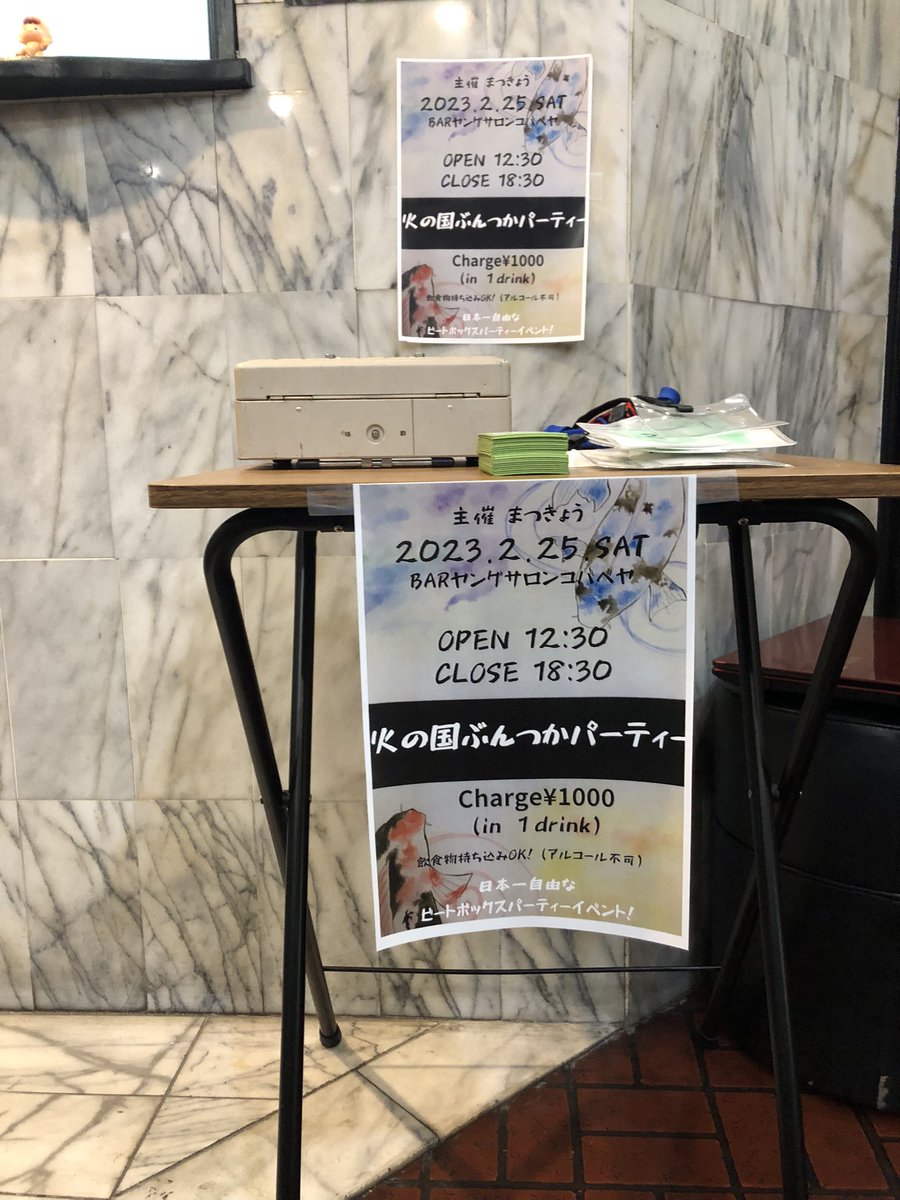 主催 まつきょう
2023.2.25.SAT
BARヤングサロンコパベヤ
OPEN 12:30
CLOSE 18:30
火の国ぶんつかパーティー
Charge¥1000
(in 1drink)
飲食物持ち込みOK!(アルコール不可)
日本一自由な
ビートボックスパーティーイベント!
主催 まつきょう
2023.2.25.SAT
BARヤングサロンコパベヤ
OPEN 12:30
CLOSE 18:30
火の国ぶんつかパーティー
Charge¥1000
(in 1drink)
飲食物持ち込みOK!(アルコール不可)
日本一自由な
ビートボックスパーティーイベント!